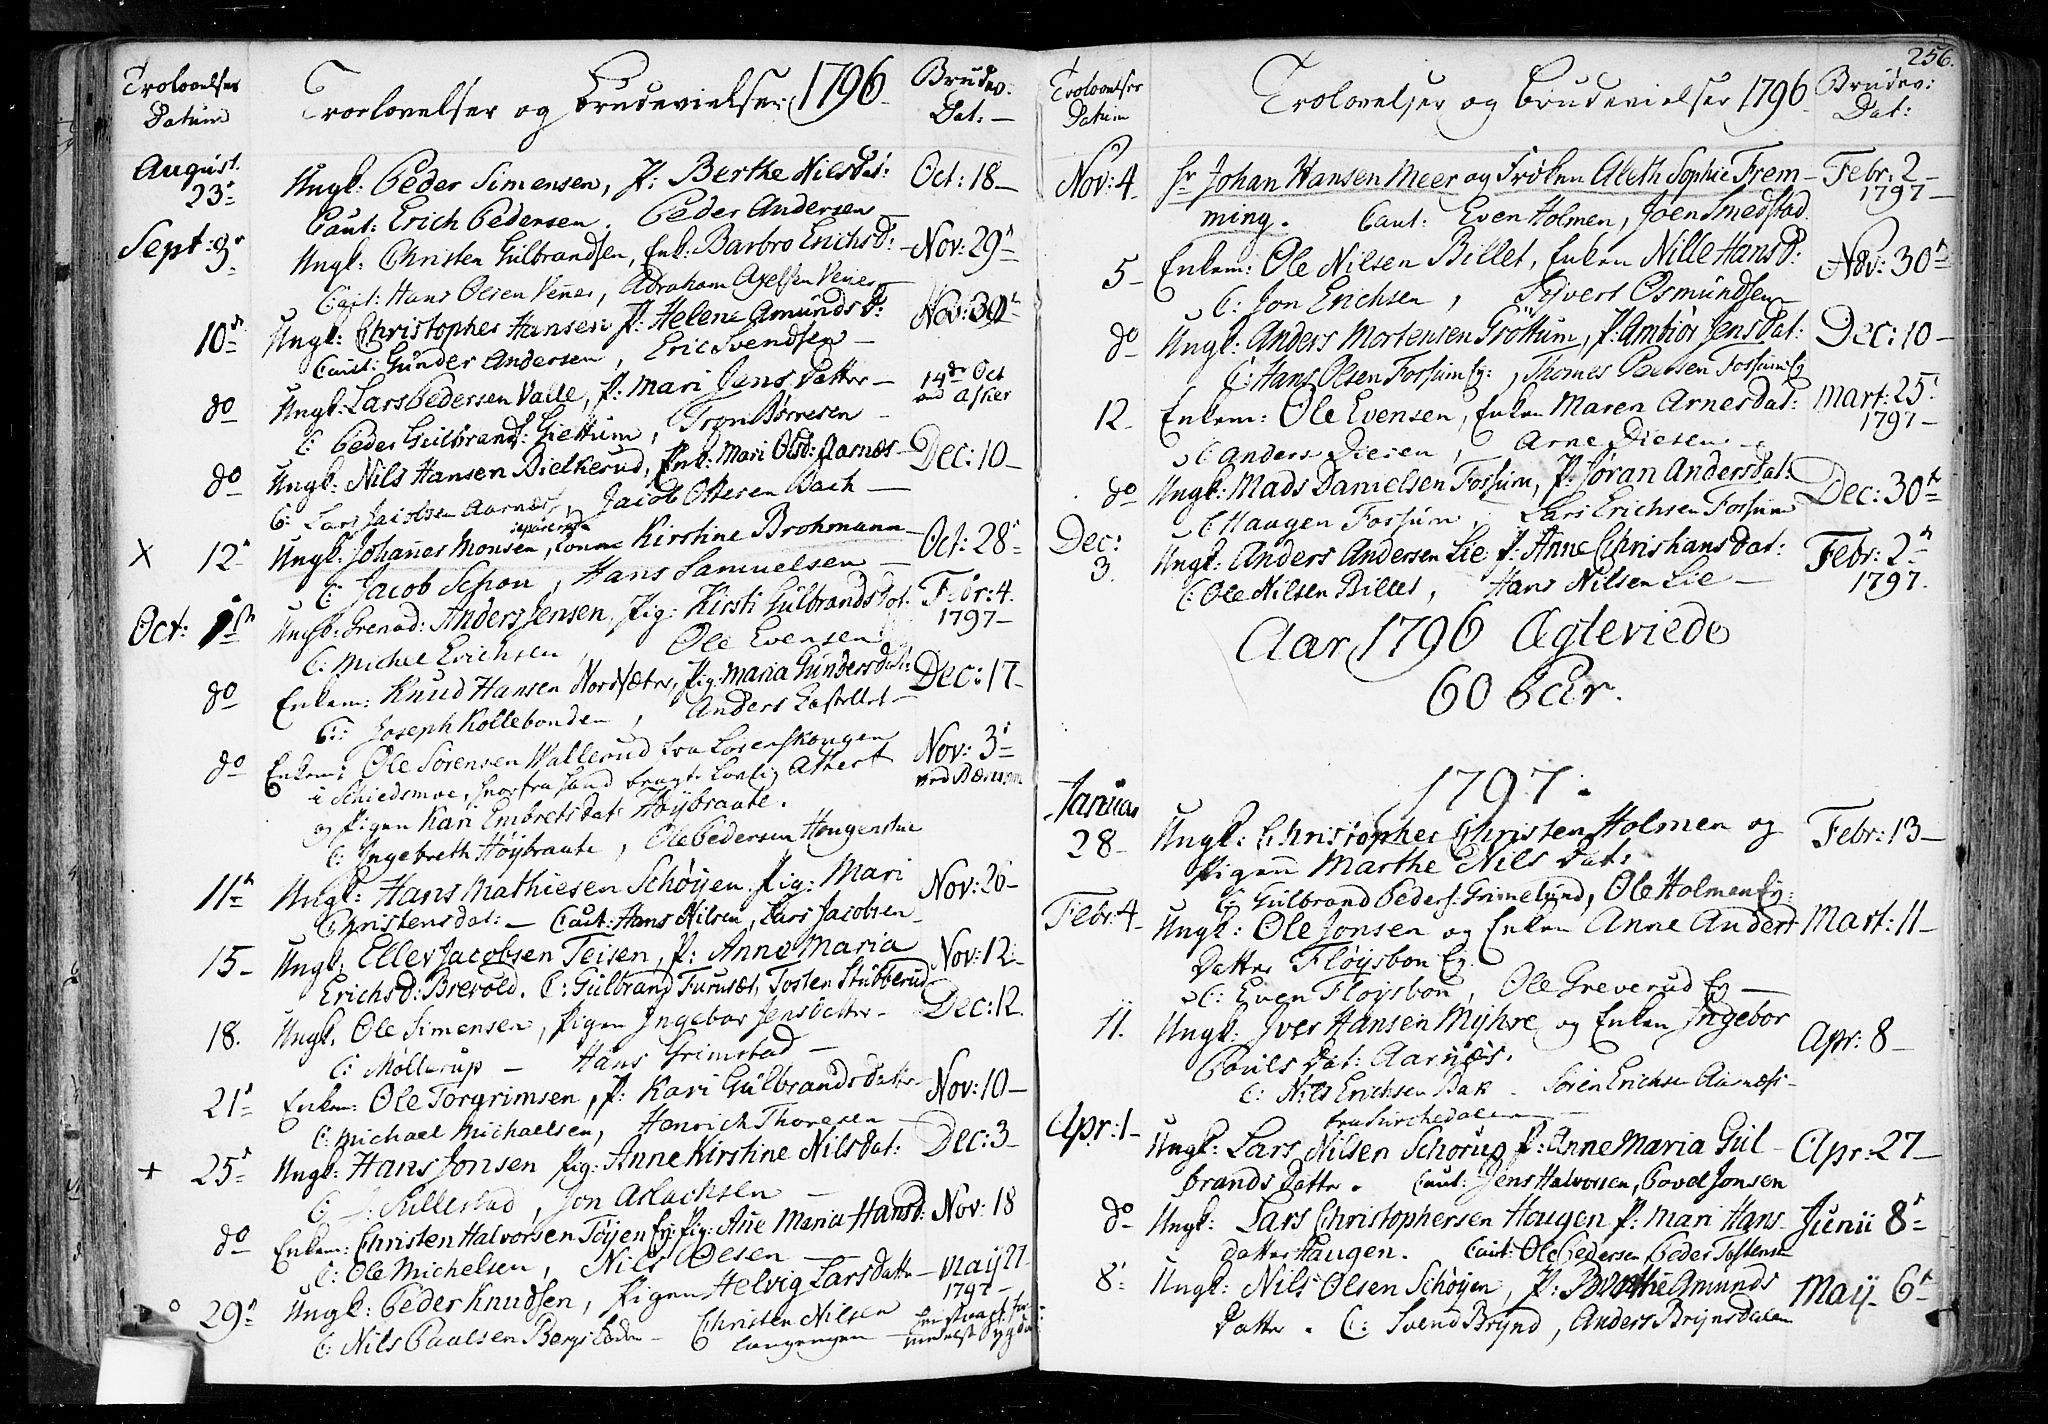 Trolovelser
Datum
Troelovelser og Brudevielser 1796
Brudev:
Dat:
August
23
Ungk: Peder Simensen, P: Berthe Nilsdat:
Oct: 18
Caut: Erich Pedersen, Peder Andersen
Sept: 3
Ungk: Christen Gulbrandsen, Enk: Barbro Erichsd:
Nov: 29
Caut: Hans Olsen, Abraham Axelsen
10
Ungk: Christopher Hansen P: Helene Amundsd:
Nov: 30
Caut: Gunder Andersen, Eric Svendsen
do
Ungk: Lars Pedersen Valle, P: Mari Jens Datter
14 Oct
ved Asker
C: Peder Gulbrands: Giettum, Tron Børresen
do
Ungk: Nils Hansen Bielkerud, Enk: Mari Olsd: Aarnæs
Dec: 10
C: Lars Jacobsen Aarnæs, Jacob Ottesen Bach
X 12
Ungk: Johannes Monsen, Kirstine Brohmann
Oct: 28
C: Jacob Schou, Hans Samuelsen
Oct: 1
Ungk: Grenad: Anders Jensen, Pig: Kirsti Gulbrandsdot:
Febr: 4
1797
C: Michel Erichsen, Ole Evensen
do
Enkem: Knud Hansen, Pig: Maria Gundersdat:
Dec: 17
C: Joseph Kollebonden, Anders
do
Enkem: Ole Sørensen Wallerud fra Lørenskougen
Nov: 3
ved Bærum
i Schiedsmoe, hvorfra hand bragte lovlig Attest
og Pigen Kari Embretsdat: Høybraate.
C: Ingebreth Høybraate, Ole Pedersen Hougenstue
11
Ungk: Hans Mathiesen Schøyen, Pig: Mari
Nov: 26
Christensdat: Caut: Hans Nilsen, Lars Jacobsen
15
Ungk. Eller Jacobsen Teisen, P: Anne Maria
Nov: 12
Erichsd: Brevold. C: Gulbrand Furusæt, Tosten Stubberud
18.
Ungk. Ole Simensen, Pigen Ingebor Jensdatter
Dec: 12
C: Mollerup Hans Grimstad
21
Enkem: Ole Torgrimsen, P: Kari Gulbrandsdatter
Nov: 10
C: Michael Michaelsen, Henrich Thoresen
+ 25
Ungk: Hans Jonsen Pig: Anne Kirstine Nilsdat:
Dec: 3
C: J: Sillestad, Jon Aslachsen
do
Enkem: Christen Halvorsen Tøyen Eg: Pig: Ane Maria Hansd:
Nov: 18
C: Ole Michelsen, Nils Olsen
29
Ungk: Peder Knudsen, Pigen Helvig Larsdatter
May 27
1797
C: Nils Paulsen, Christen Nilsen

256.
Trolovelser
Datum
Trolovelser og Brudevielser 1796
Brudev:
Dat:
Nov: 4
Hr Johan Hansen Meer og Frøken Aleth Sophie Frem-
Febr: 2
1797
ming. Caut: Even Holmen, Joen Smedstad.
5
Enkem: Ole Nilsen Billet, Enken Nille Hansd:
Nov: 30
C: Jon Erichsen, Sivert Osmundsen
do
Ungk: Anders Mortensen Grøttum, P: Ambiør Jensdat:
Dec: 10
C: Hans Olsen Fossum Eg:, Thomes Poulsen Fossum Eg
12
Enkem: Ole Evensen, Enken Maren Arnesdat:
Mart: 25
1797
C: Anders Diesen, Arne Diesen
do
Ungk: Mads Danielsen Fossum, P: Jøran Andersdat:
Dec: 30
C: Haagen Fossum, Lars Erichsen Fossum
Dec:
3.
Ungk: Anders Andersen Lie P: Anne Christiansdat:
Febr: 2
1797.
C: Ole Nilsen Billet, Hans Nilsen Lie
Aar 1796 Ægteviede
60 Par.
1797.
Januar
28
Ungk: Christopher Christen Holmen og
Febr: 13
Pigen Marthe Nils Dat:
C: Gulbrand Peders: Grimelund, Ole Holmen Eg:
Febr: 4
Ungk: Ole Jonsen og Enken Anne Anders
Mart: 11
Datter Fløysbon Eg.
C: Even Fløysbon, Ole Greverud Eg
11.
Ungk: Iver Hansen Myhre og Enken Ingebor
Apr: 8
Pouls Dat: Aarnæs.
C: Nils Erichsen Bak. Sören Erichsen Aarnæs
fra Sørchedalen
Apr: 1
Ungk: Lars Nilsen Schorug P: Anne Maria Gul-
Apr: 27
brands Datter. Caut: Jens Halvorsen, Povel Jonsen
do
Ungk: Lars Christophersen Haugen P: Mari Hans-
Junii 8
datter Haugen. Caut: Ole Pedersen Peder Tostensen
8
Ungk: Nils Olsen Schøyen, P: Berthe Amunds
May 6
Datter. C: Svend Brynd, Anders Brynsdalen